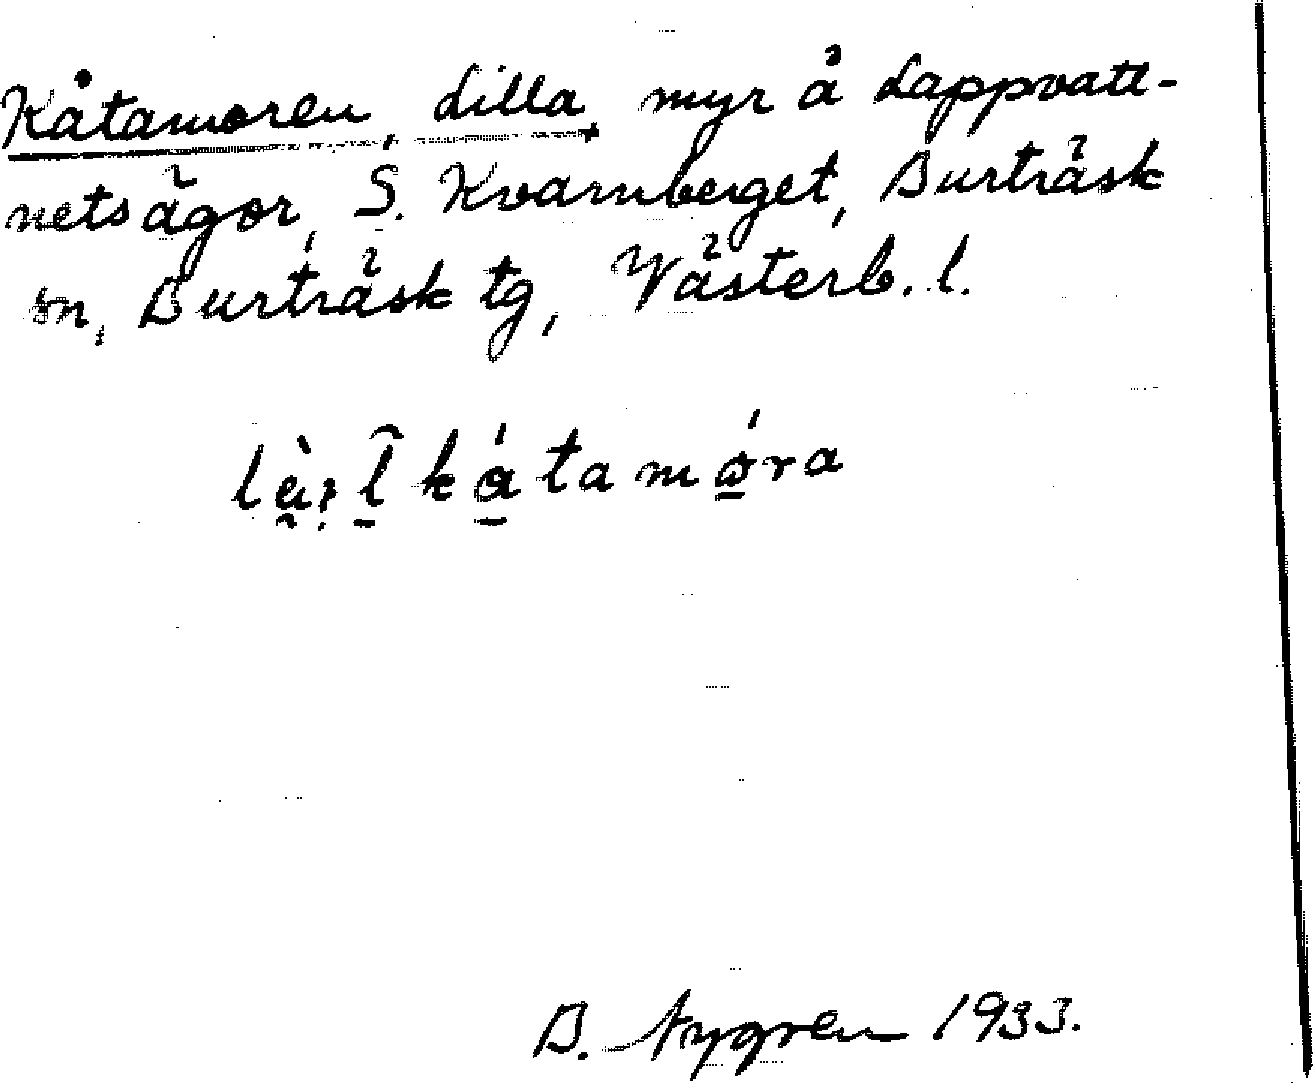 Kåtamoren, Lilla, myr å Lappvatt-
netsägor, S. Kvarnberget, Burträsk
sn, Burträsk tg, Västerb. l.
kátamóra
B. Nygren 1933.